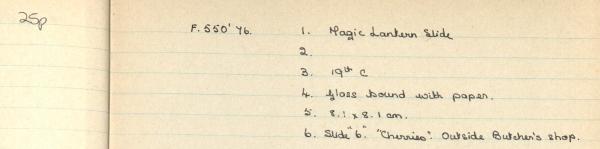 25p
F.550'76. 1. Magic Lantern Slide
2.
3. 19th C
4. Glass bound with paper.
5. 8.1 x 8.1 cm.
6. Slide "6". "Cherries". Outside Butcher's shop.